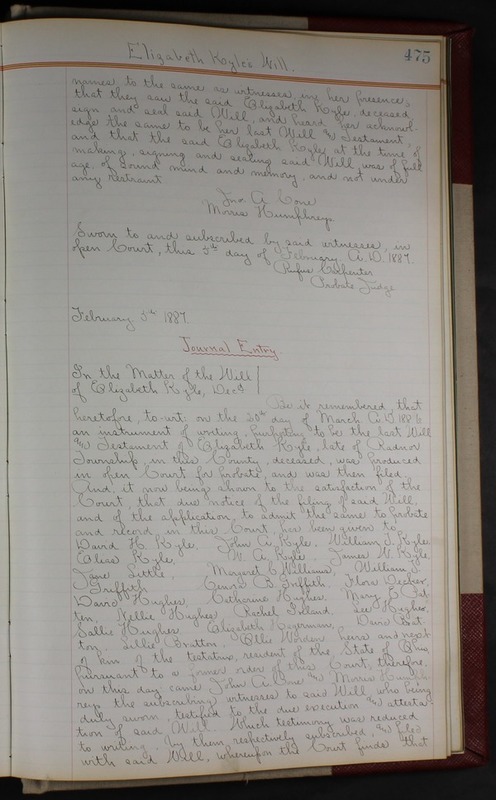 Elizabeth Kyles Will.
475
names to the same as witnesses in her presence;
that they saw the said Elizabeth Kyle, deceased,
sign and seal said Will, and heard her acknowl-
edge the same to be her last Will and Testament,
and that the said Elizabeth Kyle, at the time of
making, signing and sealing said Will, was of full
age, of sound mind and memory, and not under
any restraint.
Jno. A. Cone
Morris Humphreys
Sworn to and subscribed by said witnesses, in
open Court, this 5th day of February, A. D. 1887.
Rufus Carpenter
Probate Judge
February 5th 1887.
Journal Entry.
In the Matter of the Will
of Elizabeth Kyle, Decd
Be it remembered, that
heretofore, to-wit: on the 20th day of March A. D. 1886
an instrument of writing purporting to be the last Will
and Testament of Elizabeth Kyle, late of Radnor
Township, in this County, deceased, was produced
in open Court for probate, and was then filed.
And, it now being shown to the satisfaction of the
Court, that due notice of the filing of said Will,
and of the application to admit the same to probate
and record in this Court has been given to
David H. Kyle, John A. Kyle, William J. Kyle,
Elias Kyle, W. A. Kyle, James W. Kyle,
Jane Little, Margaret E. Williams, William
Griffith, B. Griffith, Flora Decker,
David Hughes, Catherine Hughes, Mary E.
ton, Nellie Hughes, Rachel Ireland, Lee Hughes,
Sallie Hughes, Elizabeth
ton, Lillie Bratton, Ollie Worden heirs and next
of kin of the testatrix, resident of the State of Ohio
pursuant to a former order of this Court, therefore,
on this day came John A. Cone and Morris Humph-
reys the subscribing witnesses to said Will who being
duly sworn, testified to the due execution and attesta-
tion of said Will. Which testimony was reduced
to writing, by them respectively subscribed, and filed
with said Will, whereupon the Court finds that